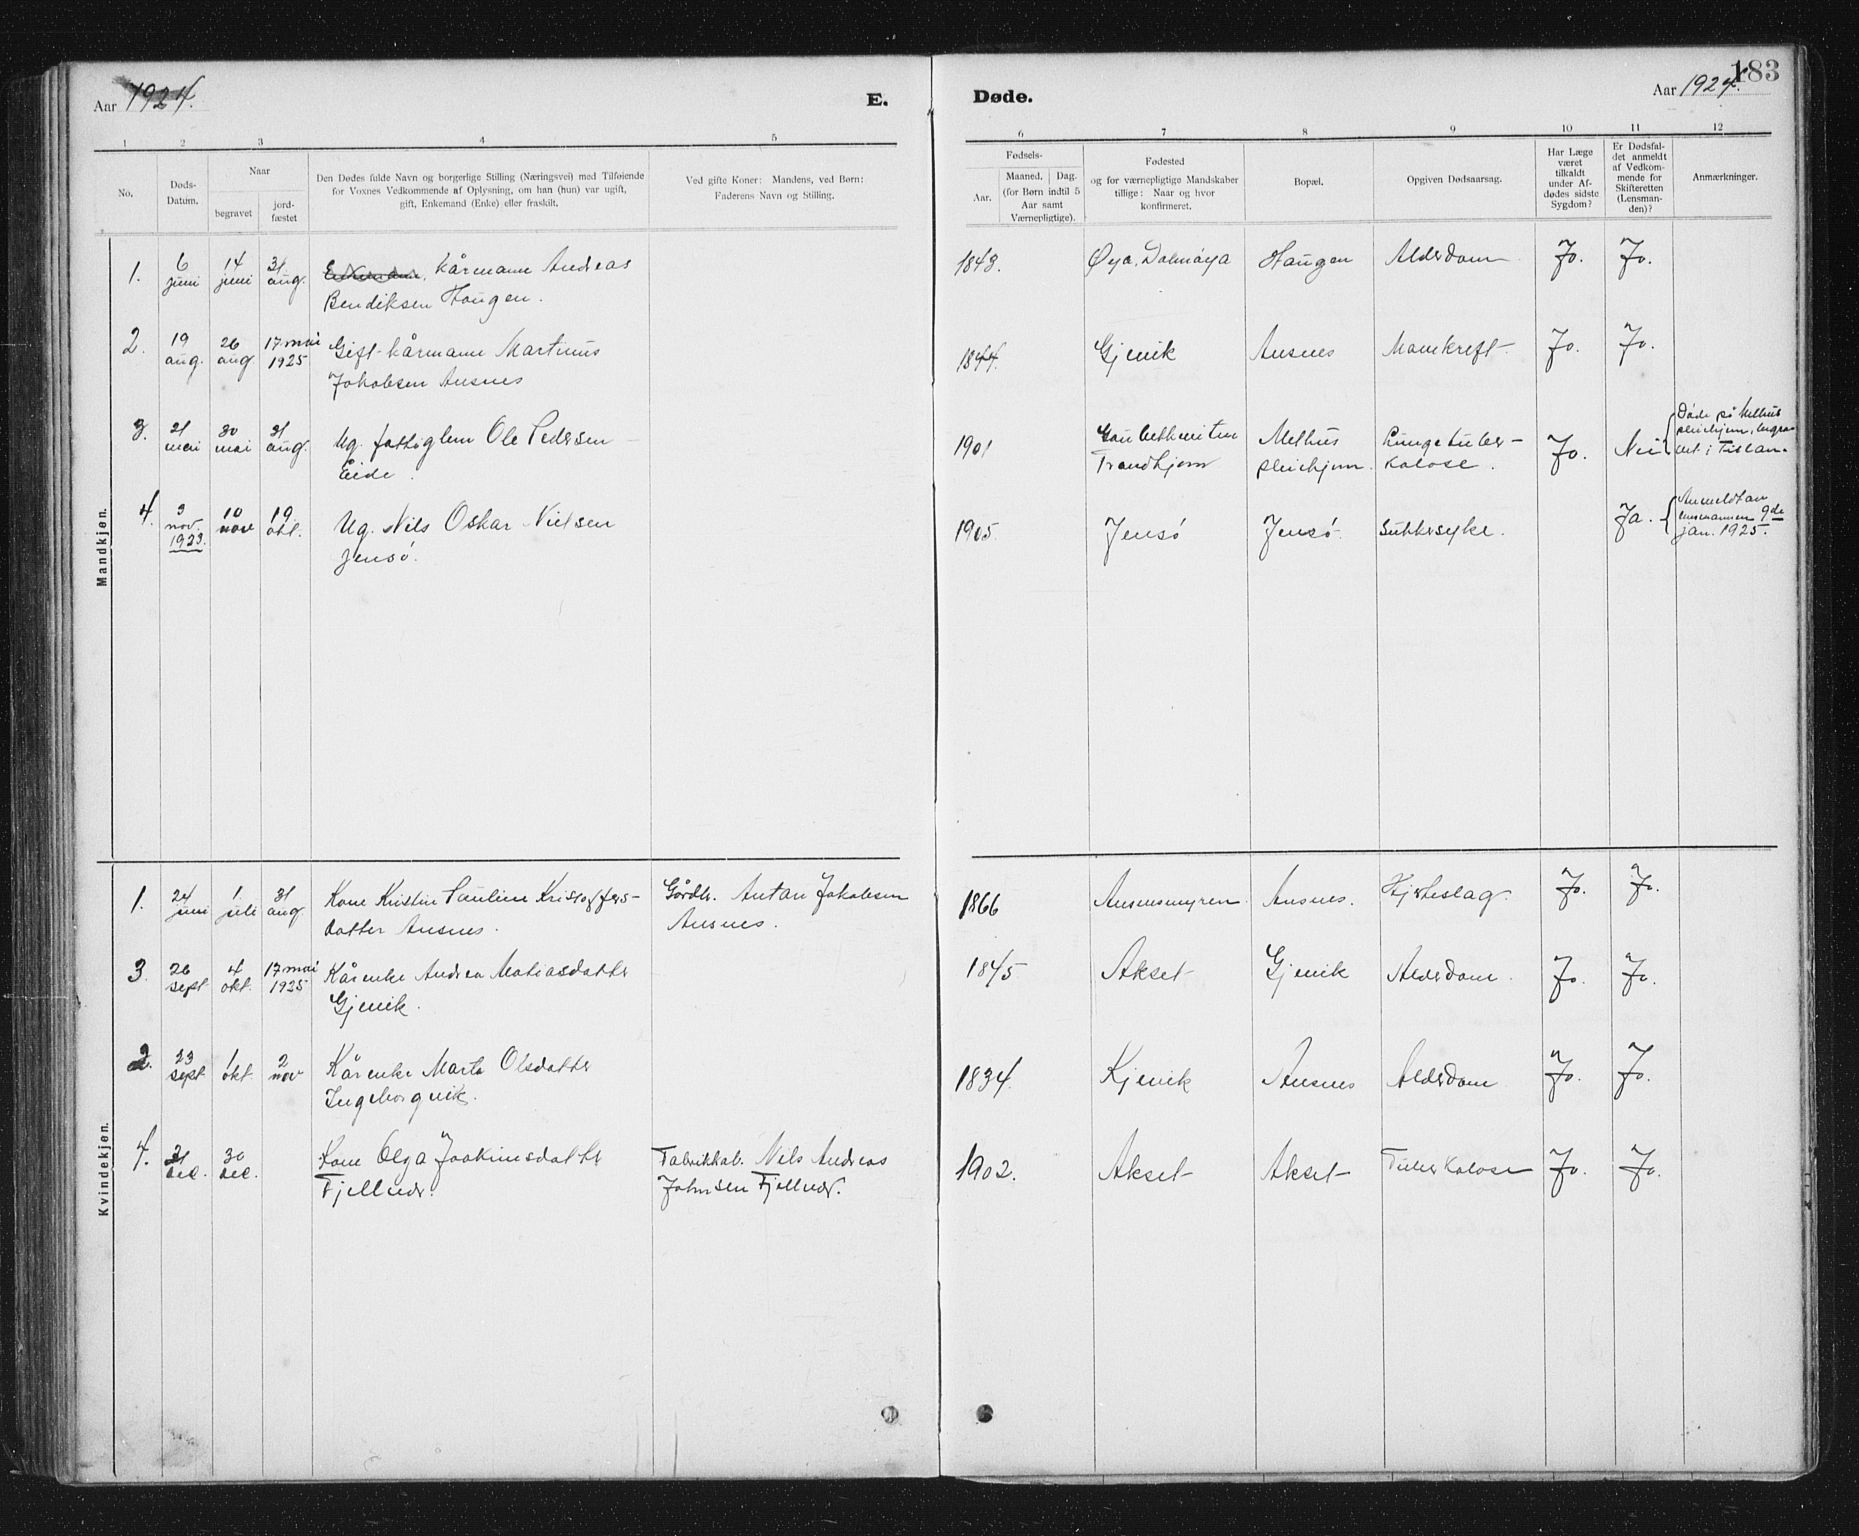 Aar 1924.
E.
Døde.
183
Aar 1924.
1 2 3 4 5 6 7 8 9 10 11 12
No.
Døds-
Datum.
Naar
begravet
jord-
fæstet
Den Dødes fulde Navn og borgerlige Stilling (Næringsvei) med Tilføiende
for Voxnes Vedkommende af Oplysning, om han (hun) var ugift,
gift, Enkemand (Enke) eller fraskilt.
Ved gifte Koner: Mandens, ved Børn:
Faderens Navn og Stilling.
Fødsels-
Aar.
Maaned. Dag.
(for Børn indtil 5
Aar samt
Værnepligtige).
Fødested
og for værnepligtige Mandskaber
tillige: Naar og hvor
konfirmeret.
Bopæl.
Opgiven Dødsaarsag.
Har Læge
været
tilkaldt
under Af-
dødes sidste
Sygdom?
Er Dødsfal-
det anmeldt
af Vedkom-
mende for
Skifteretten
(Lensman-
den)?
Anmærkninger.
Mandkjøn.
1. 6 juni 14 juni 31 aug. Kårmann Andreas
Bendiksen Haugen.
1843. Øya, Dolmøya Haugen Alderdom Jo. Jo.
2. 19 aug. 26 aug. 17 mai 1925 Gift kårmann Martinus
Jakobsen Ausnes
1844. Gjevik Ausnes Mavekreft. Jo. Jo.
3. 21 mai 30 mai 31 aug. Ug. fattiglem Ole Pedersen
Eide.
1901 Trondhjem Melhus
pleiehjem. Lungetuber-
kolose. Jo. Nei
Døde på Melhus
pleiehjem, begra-
vet i Tislan.
4. 3 nov. 1923. 10 nov 19 okt. Ug. Nils Oskar Nielsen
Jensø.
1905. Jensø Jensø. Sukkersyke. Ja.
Anmeldt av
lensmannen 9de
jan. 1925.
Kvindekjøn.
1. 24 juni 1 juli 31 aug Kone Kristin Pauline Kristoffers-
datter Ausnes.
Gårdbr. Anton Jakobsen
Ausnes.
1866 Ausnesmyren Ausnes. Hjerteslag. Jo. Jo.
3. 26 sept 4 okt. 17 mai 1925 Kårenke Andrea Matiasdatter
Gjevik.
1845 Akset Gjevik Alderdom. Jo. Jo.
2. 23 sept 1 okt. 2 nov Kårenke Marta Olsdatter
Ingeborgvik.
1834. Kjevik Ausnes Alderdom Jo. Jo.
4. 21 des. 30 des. Kone Olga Joakimsdatter
Fjellvær.
Fabrikkab. Nils Andreas
Johnsen Fjellvær.
1902. Akset Akset Tuberkolose Jo. Jo.